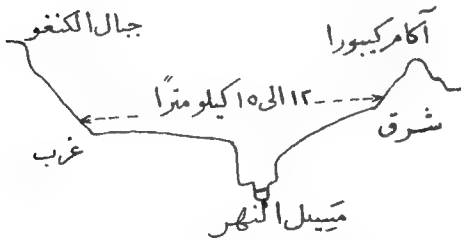 جبال الكنغو
آكام كيبورا
١٢ الى ١٥ كيلو مترًا
غرب
شرق
مَسِيل النهر